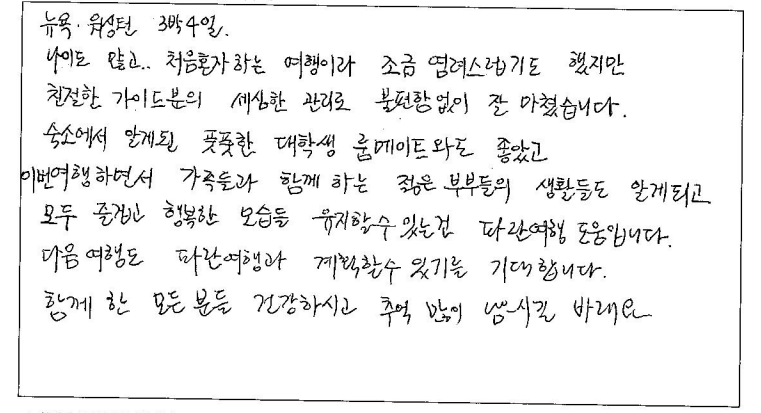 뉴욕·워싱턴 3박4일.
나이도 많고.. 처음혼자하는 여행이라 조금 염려스럽기도 했지만
친절한 가이드분의 세심한 관리로 불편함없이 잘 마쳤습니다.
숙소에서 알게된 풋풋한 대학생 룸메이트와도 좋았고
이번여행하면서 가족들과 함께 하는 젊은 부부들의 생활들도 알게되고
모두 즐겁고 행복한 모습들 유지할수 있는건 파란여행 도움입니다.
다음여행도 파란여행과 계획할수 있기를 기대합니다.
함께 한 모든 분들 건강하시고 추억 많이 남기시길 바래요